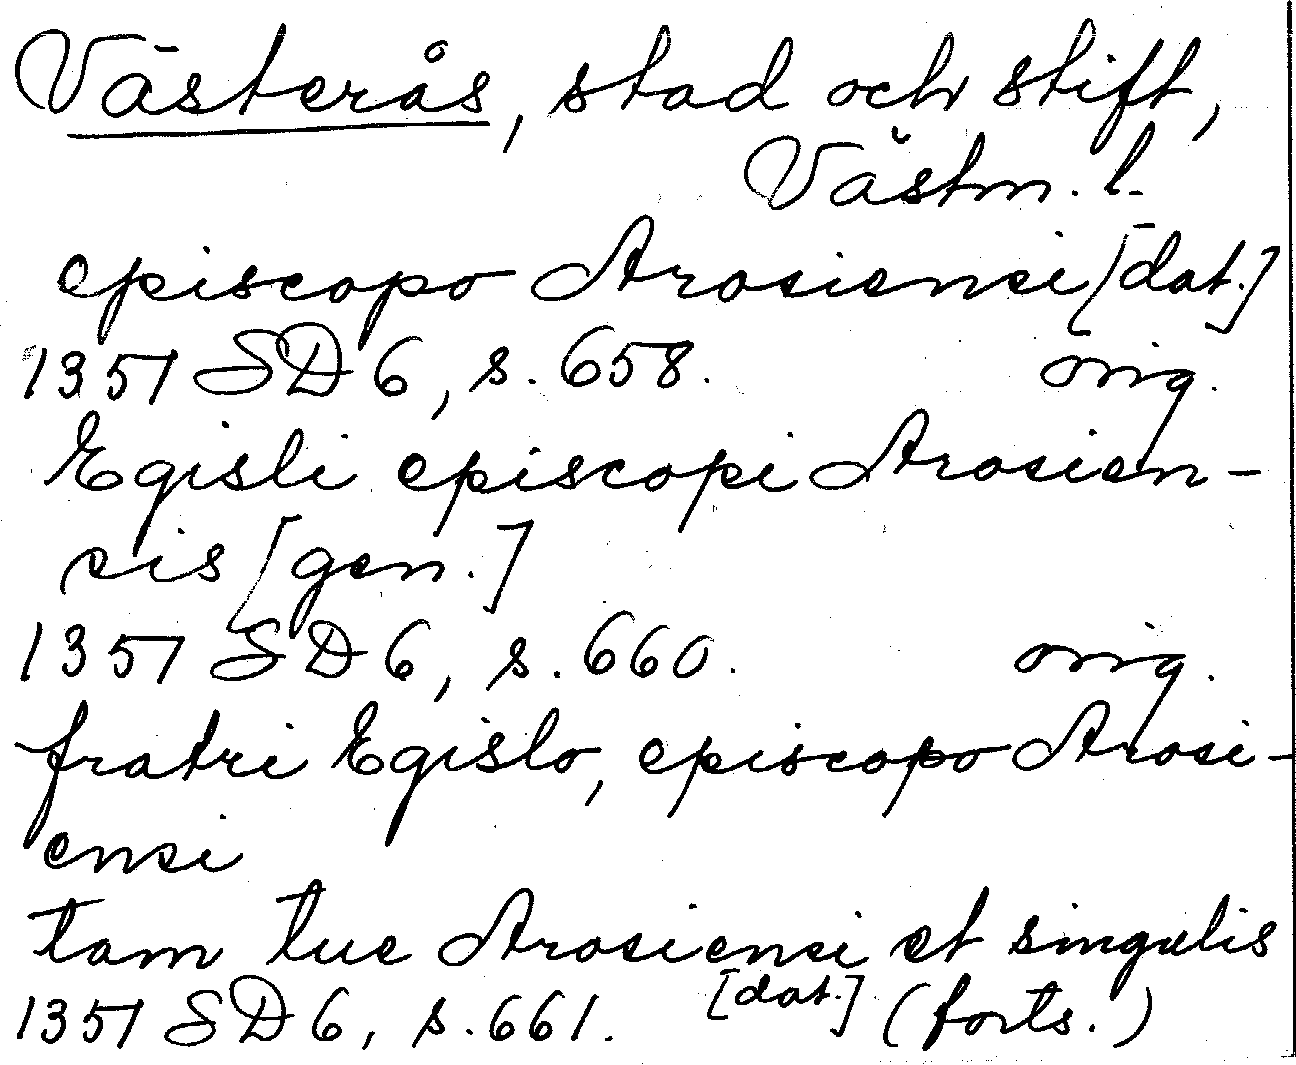 Västerås, stad och stift,
Västm. l.
episcopo Arosiensi [dat.]
1357 SD 6, s. 658. orig.
Egisli episcopi Arosien-
sis [gen.]
1357 SD 6, s. 660. orig.
fratri Egislo, episcopo Arosi-
ensi
tam tue Arosiensi et singulis
1357 SD 6, s. 661. [dat.] (forts.)